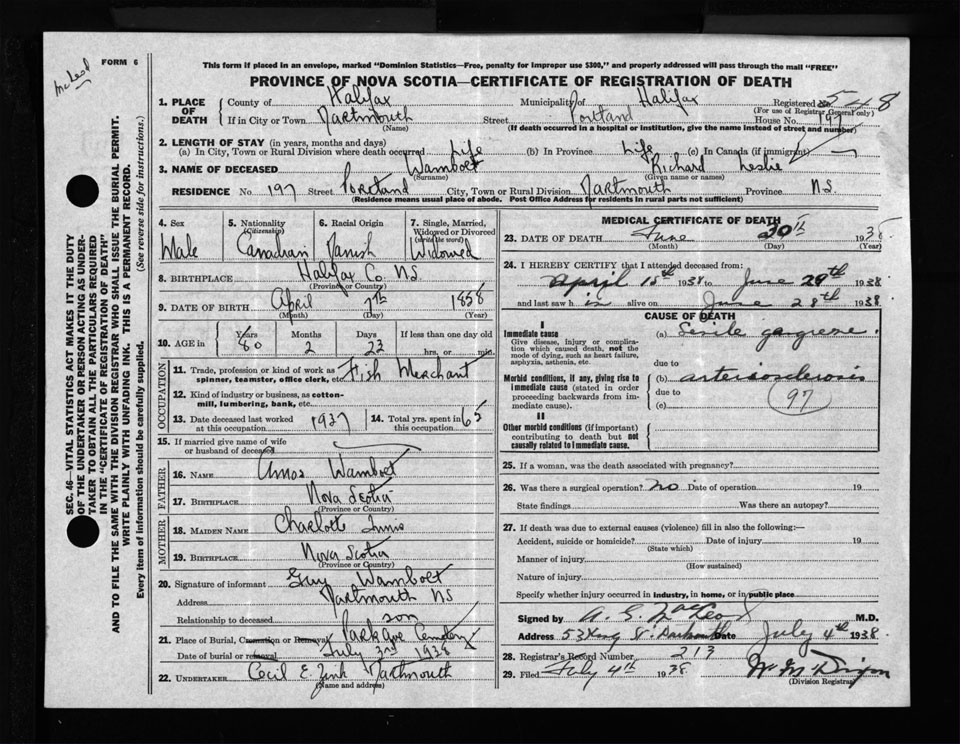 McLeod
FORM 6
This form if placed in an envelope, marked "Dominion Statistics—Free, penalty for improper use $300," and properly addressed will pass through the mail "FREE"
PROVINCE OF NOVA SCOTIA—CERTIFICATE OF REGISTRATION OF DEATH
1. PLACE OF DEATH
County of Halifax Municipality of Halifax Registered No 548
(For use of Registrar General only)
If in City or Town Dartmouth Street Portland House No. 197
(Name) (If death occurred in a hospital or institution, give the name instead of street and number)
2. LENGTH OF STAY (in years, months and days)
(a) In City, Town or Rural Division where death occurred Life (b) In Province Life (c) In Canada (if immigrant)
3. NAME OF DECEASED Wambolt Richard Leslie
(Surname) (Given name or names)
RESIDENCE No 197 Street Portland City, Town or Rural Division Dartmouth Province N.S.
(Residence means usual place of abode. Post Office Address for residents in rural parts not sufficient)
4. Sex
Male
5. Nationality
(Citizenship)
Canadian
6. Racial Origin
Danish
7. Single, Married, Widowed or Divorced
(write the word)
Widowed
8. BIRTHPLACE Halifax Co. N.S.
(Province or Country)
9. DATE OF BIRTH April 7th 1858
(Month) (Day) (Year)
10. AGE in
Years Months Days If less than one day old
80 2 23 hrs. or min.
OCCUPATION
11. Trade, profession or kind of work as spinner, teamster, office clerk, etc. Fish Merchant
12. Kind of industry or business, as cotton-mill, lumbering, bank, etc.
13. Date deceased last worked at this occupation 1937
14. Total yrs. spent in this occupation 65
15. If married give name of wife or husband of deceased
FATHER
16. NAME Amos Wambolt
17. BIRTHPLACE Nova Scotia
(Province or Country)
MOTHER
18. MAIDEN NAME Charlotte Innis
19. BIRTHPLACE Nova Scotia
(Province or Country)
20. Signature of informant Guy Wambolt
Address Dartmouth NS
Relationship to deceased son
21. Place of Burial, Cremation or Removal Park Ave Cemetery
Date of burial or removal July 3rd 1938
22. UNDERTAKER Cecil E. Zink Dartmouth
(Name and address)
MEDICAL CERTIFICATE OF DEATH
23. DATE OF DEATH June 30th 1938
(Month) (Day)
24. I HEREBY CERTIFY that I attended deceased from:
April 15th 1938 to June 29th 1938
and last saw h im alive on June 28th 1938
CAUSE OF DEATH
I
Immediate cause (a) Senile gangrene
Give disease, injury or complication which caused death, not the mode of dying, such as heart failure, asphyxia, asthenia, etc.
due to
Morbid conditions, if any, giving rise to immediate cause (stated in order proceeding backwards from immediate cause).
(b) arteriosclerosis
due to
(c)
97
II
Other morbid conditions (if important) contributing to death but not causally related to immediate cause.
25. If a woman, was the death associated with pregnancy?
26. Was there a surgical operation? no Date of operation 19
State findings Was there an autopsy?
27. If death was due to external causes (violence) fill in also the following:—
Accident, suicide or homicide? Date of injury 19
(State which)
Manner of injury
(How sustained)
Nature of injury
Specify whether injury occurred in industry, in home, or in public place
Signed by A. G. MacLeod M.D.
Address 53 King St. Dartmouth Date July 4th 1938.
28. Registrar's Record Number 213
29. Filed July 4th 1938.
(Division Registrar)
SEC. 46—VITAL STATISTICS ACT MAKES IT THE DUTY
OF THE UNDERTAKER OR PERSON ACTING AS UNDER-
TAKER TO OBTAIN ALL THE PARTICULARS REQUIRED
IN THE "CERTIFICATE OF REGISTRATION OF DEATH"
AND TO FILE THE SAME WITH THE DIVISION REGISTRAR WHO SHALL ISSUE THE BURIAL PERMIT.
WRITE PLAINLY WITH UNFADING INK. THIS IS A PERMANENT RECORD.
Every item of information should be carefully supplied. (See reverse side for instructions.)